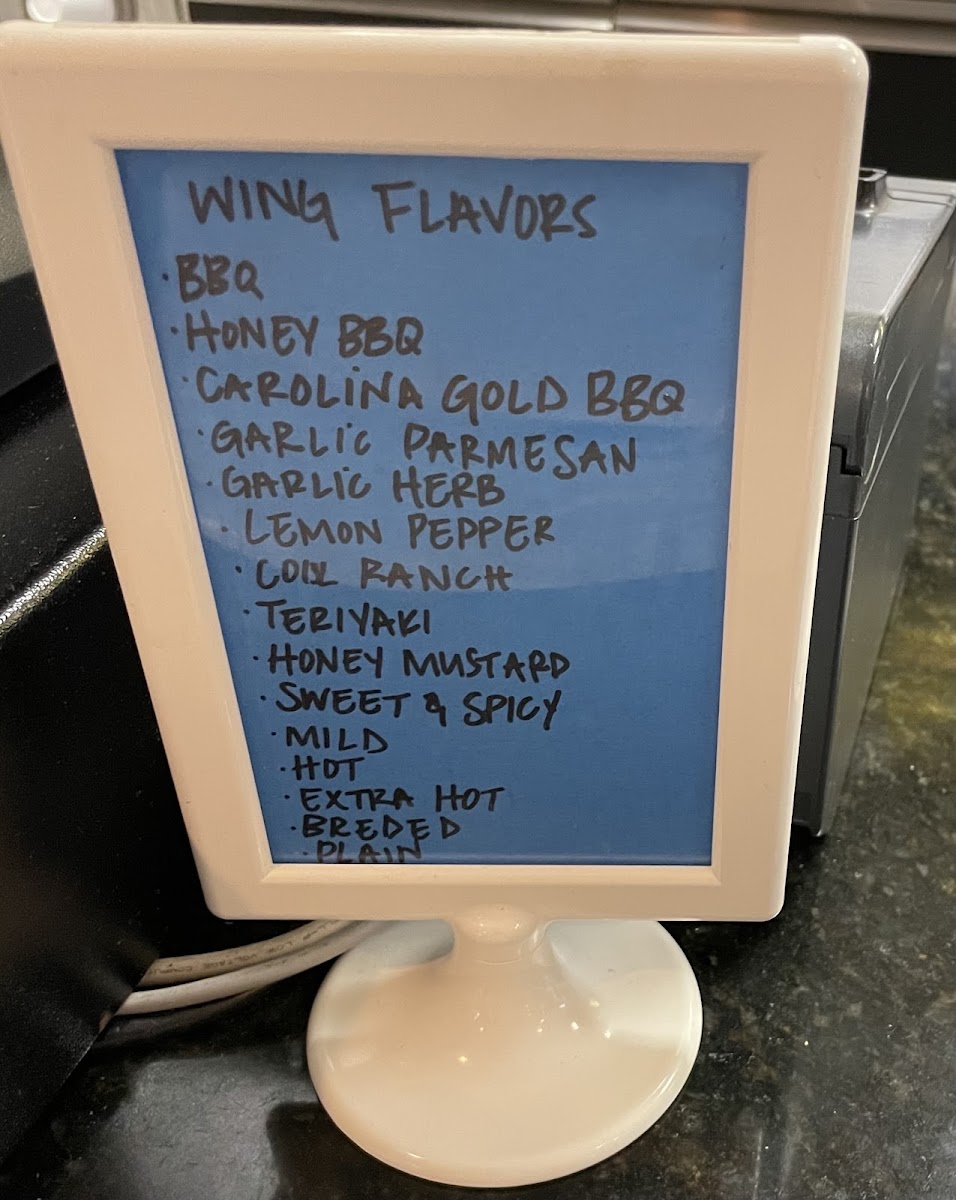 WING FLAVORS
· BBQ
· HONEY BBQ
· CAROLINA GOLD BBQ
· GARLIC PARMESAN
· GARLIC HERB
· LEMON PEPPER
· COOL RANCH
· TERIYAKI
· HONEY MUSTARD
· SWEET & SPICY
· MILD
· HOT
· EXTRA HOT
· BREDED
· PLAIN